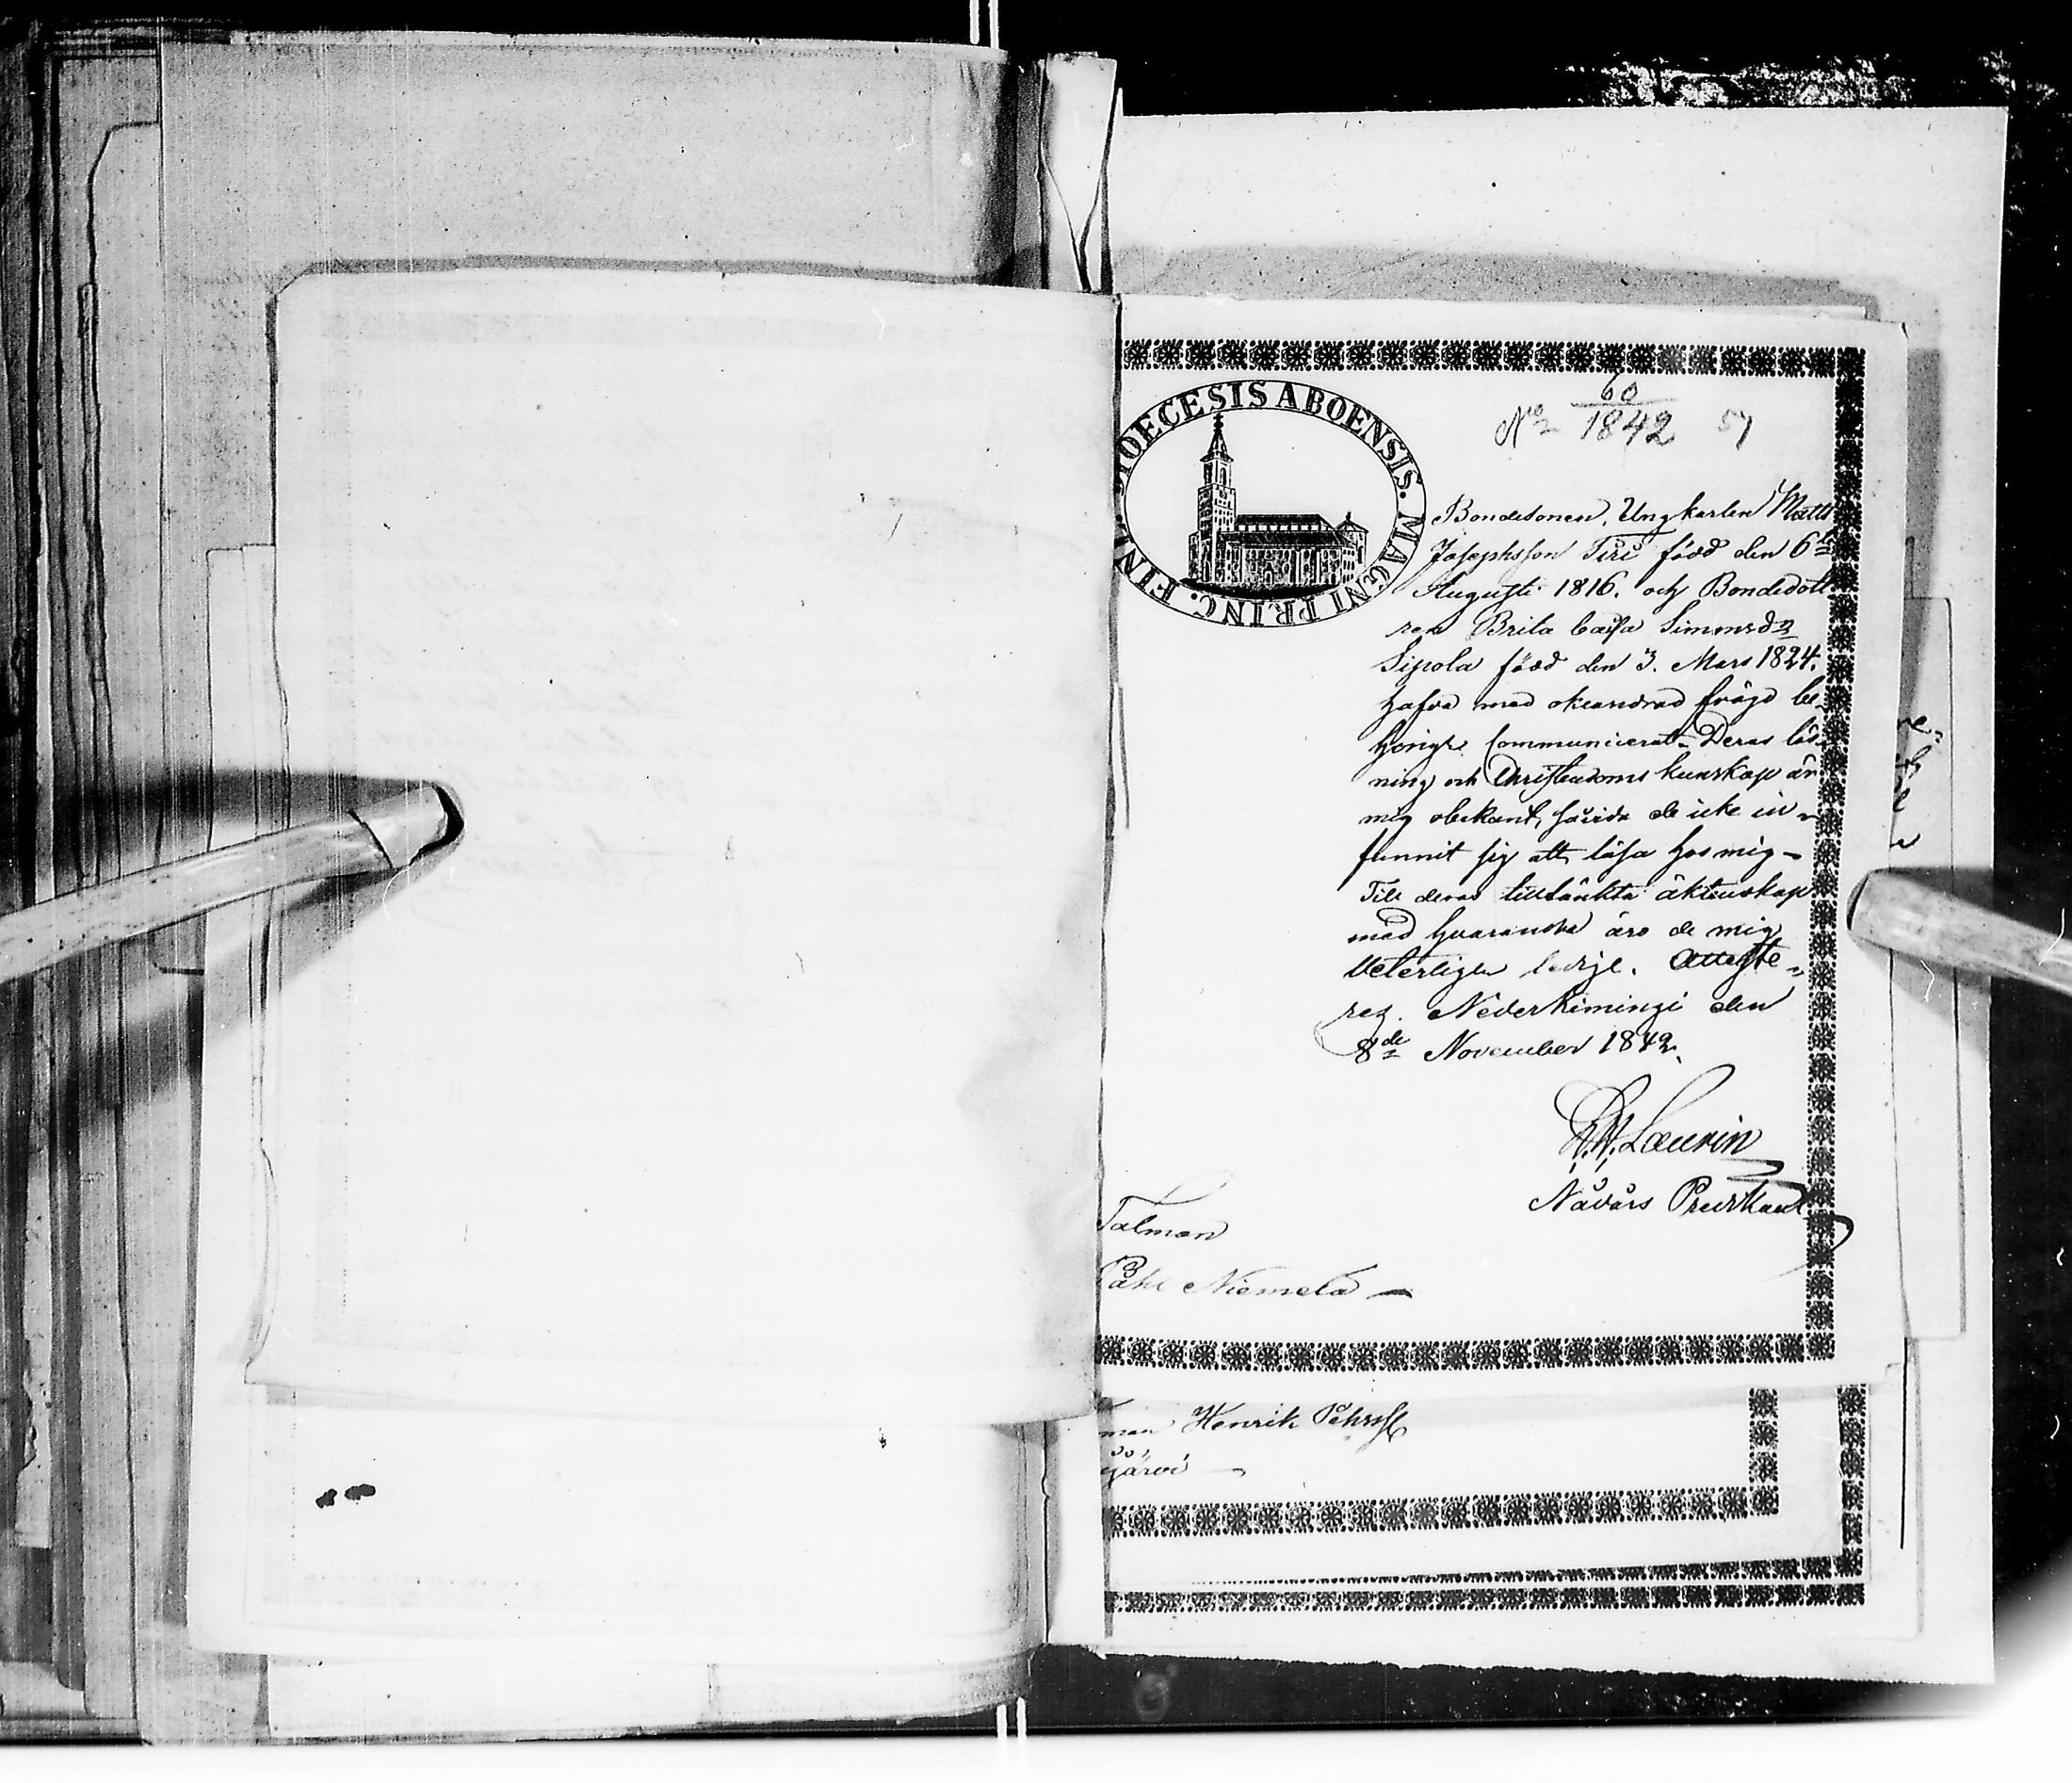 DIOECESIS ABOENSIS. MAGNI PRINC. FIN
60
N:o 1842 57
Bondesonen, Ungkarlen Matts
Josephsson Tiri född den 6te
Augusti 1816. och Bondedott-
ren Brita Caisa Simmsdr
Sipola född den 3. Mars 1824.
hafva med oklandrad frägd be-
hörigt Communicerat. Deras läs-
ning och Christendoms kunskap är
mig obekant, som de icke in-
funnit sig att läsa hos mig -
Till deras tilltänkta äktenskap
med hvarandra äro de mig
Veterligen ledige. Atteste-
rez. Nederkimingi den
8de November 1842.
Laurin
Nådårs Predikant
Talman
Påhl Niemelä
man Henrik Pehrss
järvi